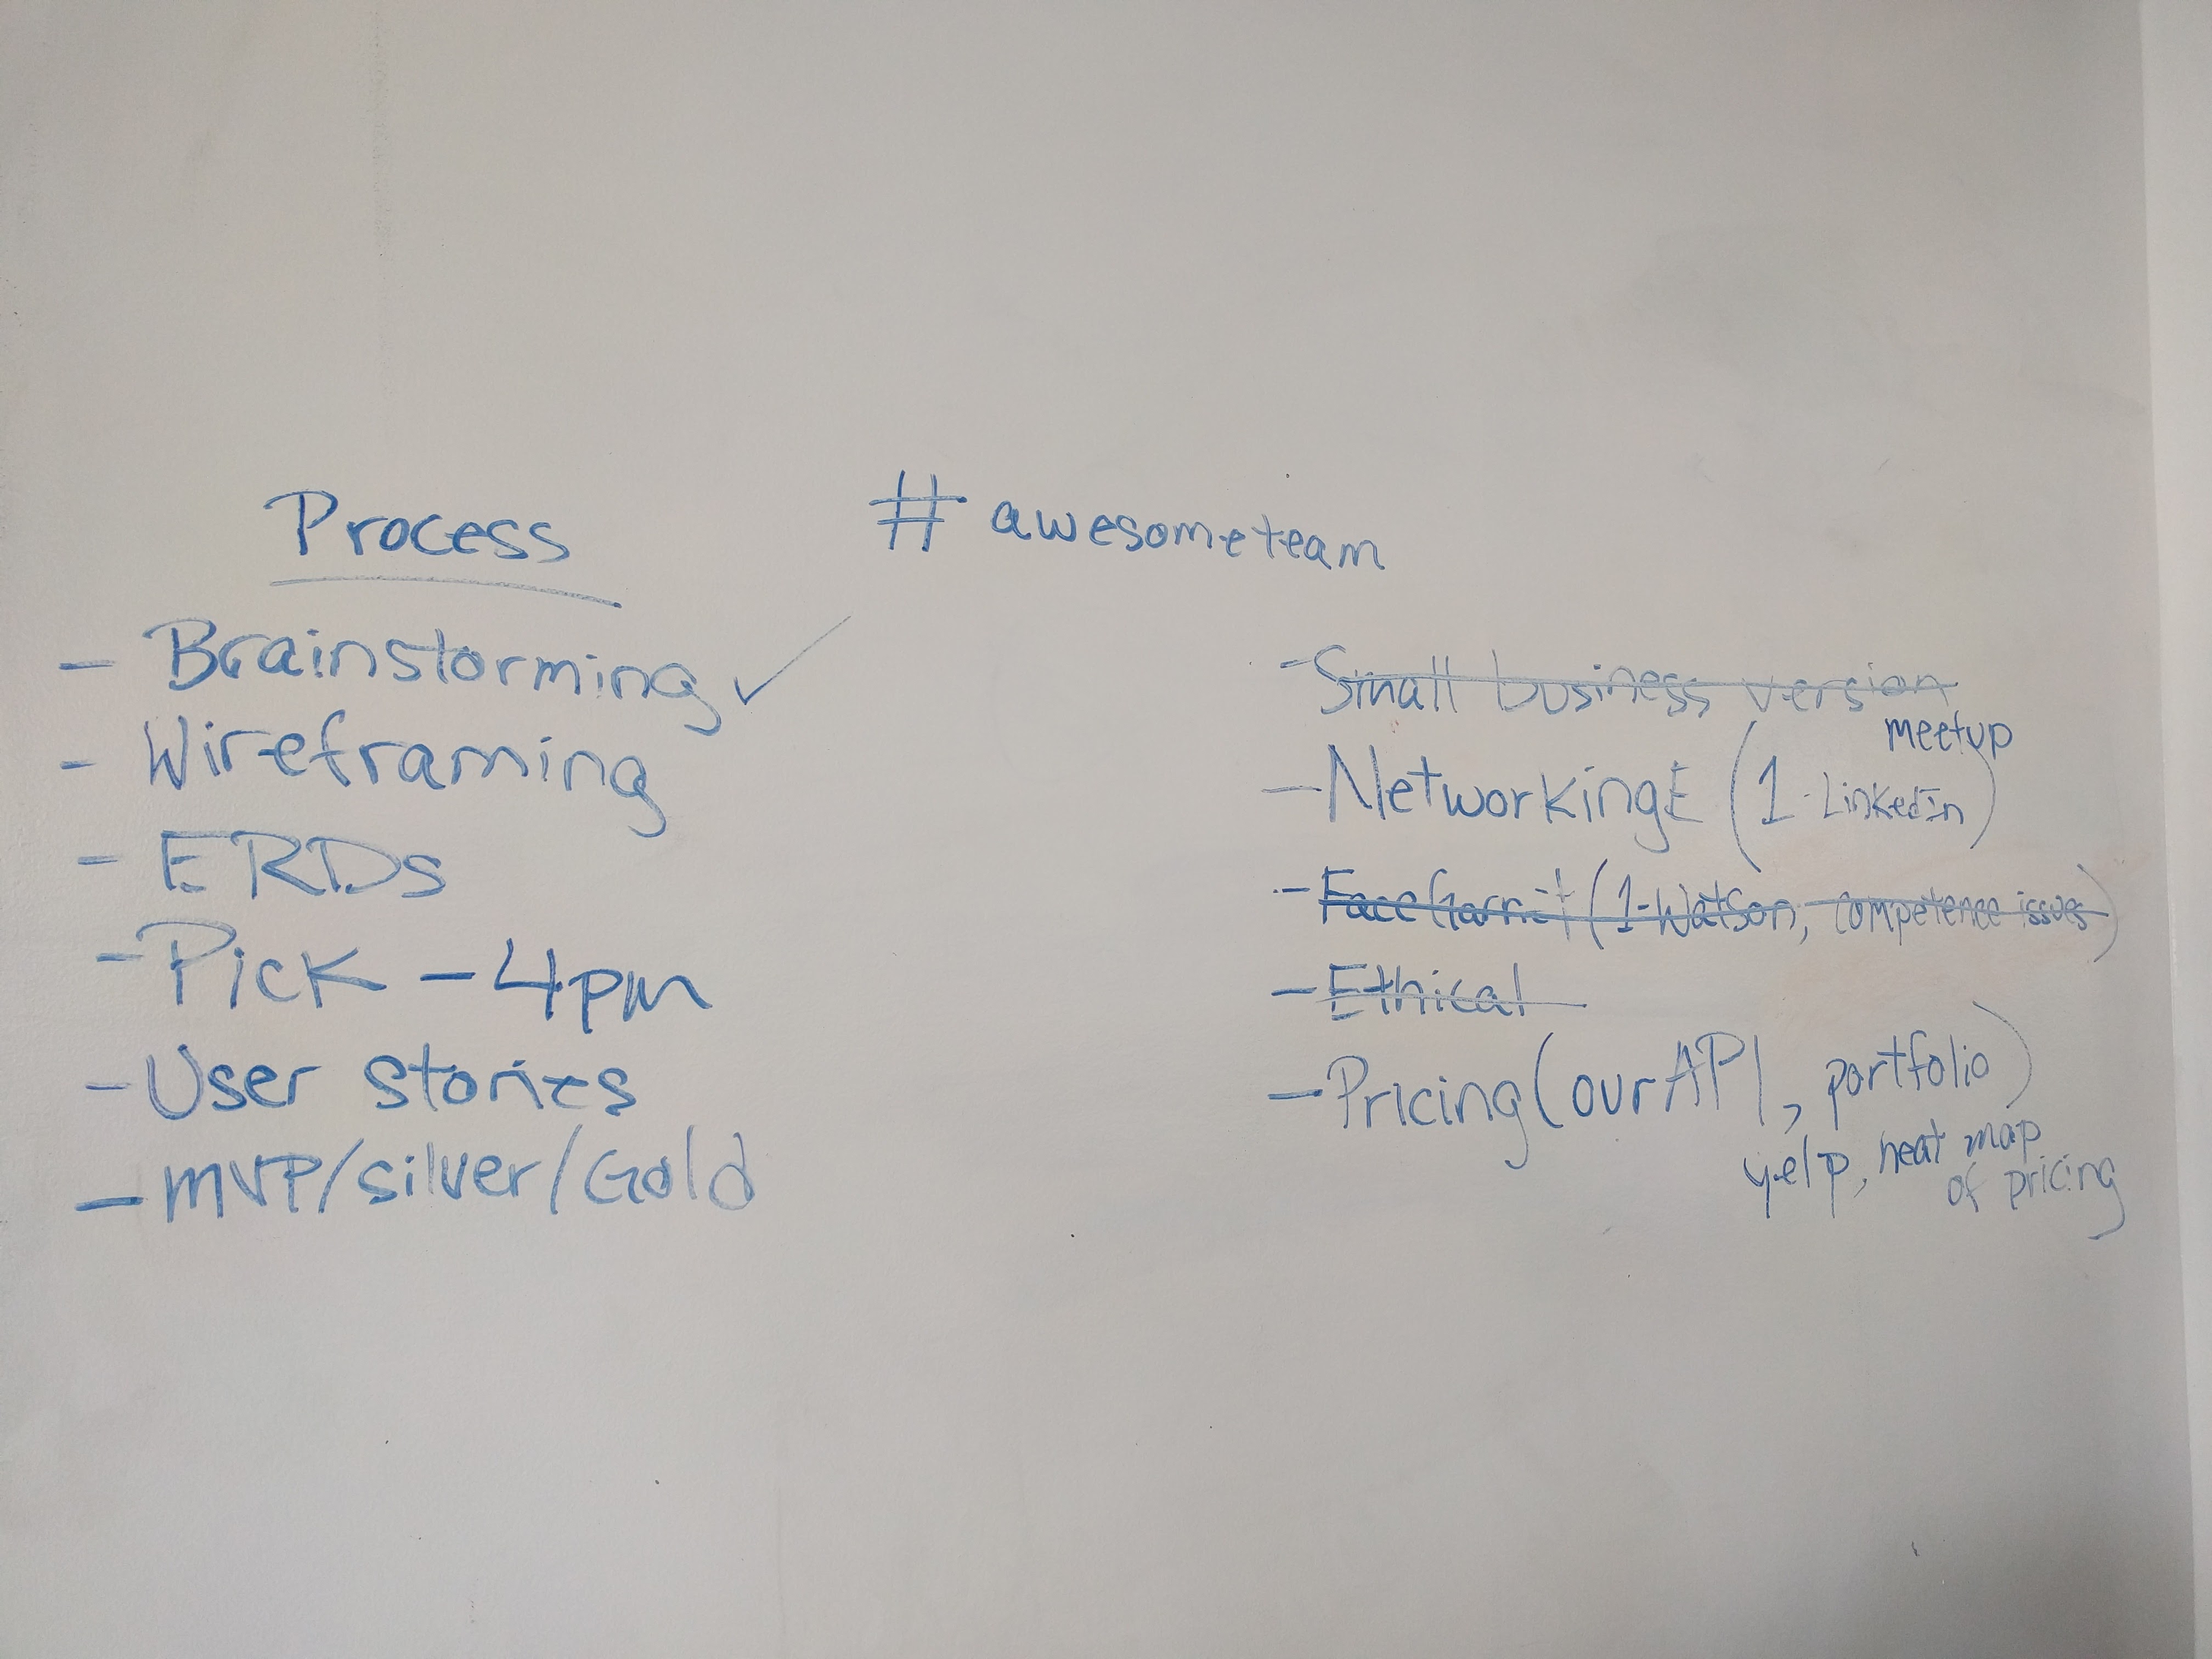 Process
# awesometeam
- Brainstorming ✓
- Wireframing
- ERDs
- Pick - 4pm
- User stories
- MVP/silver/Gold
- Small business version
meetup
- NetworkingE (1-Linkedin)
- Face (1-Watson, competence issues)
- Ethical
- Pricing (our API, portfolio)
yelp, heat map
of pricing